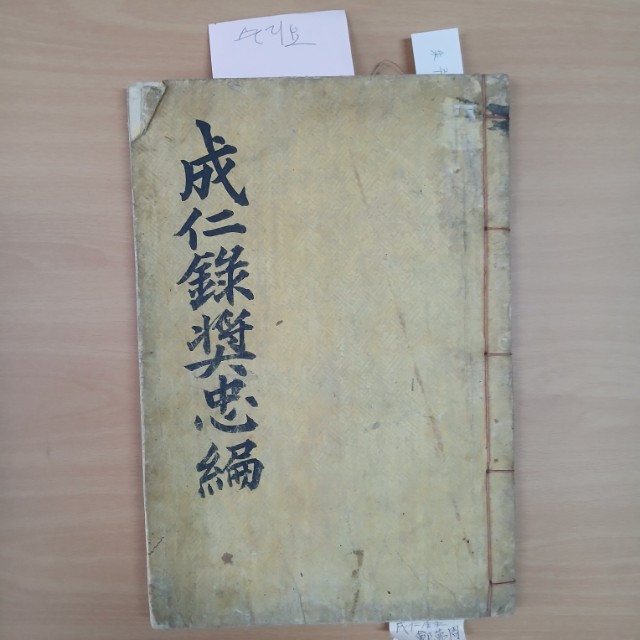 수리요
成仁錄奬忠編